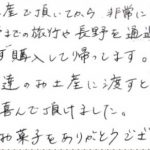 産で頂いてから 非常に
までの旅行や長野を通過
ず購入して帰ります。
達のお土産に渡すと
喜んで頂けました。
お菓子をありがとうござ